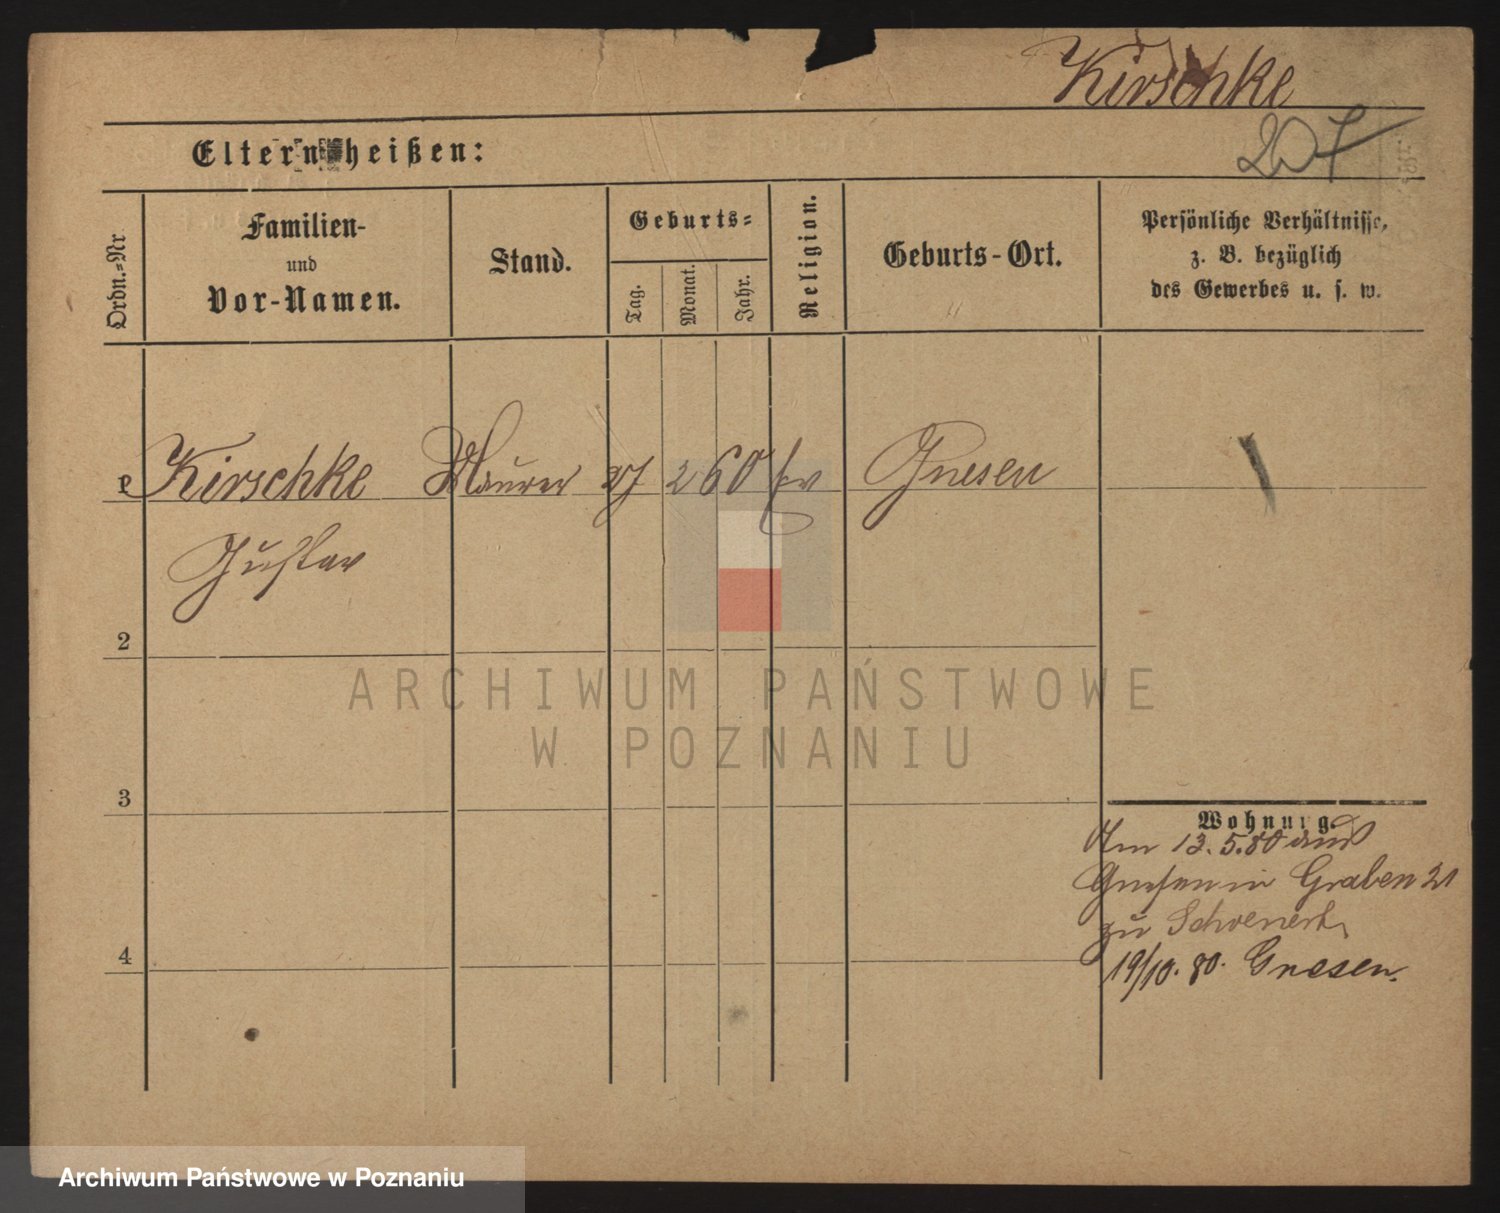 Kirschke
207
Eltern heißen:
Ordn.=Nr
Familien-
und
Vor-Namen.
Stand.
Geburts=
Tag.
Monat.
Jahr.
Religion.
Geburts-Ort.
Persönliche Verhältnisse,
z. B. bezüglich
des Gewerbes u. s. w.
1 Kirschke Maurer 27 2 60 ev Gnesen
Gustav
2
ARCHIWUM PAŃSTWOWE
W POZNANIU
3
Wohnung.
Am 13.5.80 aus
Gnesen in Graben 21
zu
4
19/10. 80. Gnesen.
Archiwum Państwowe w Poznaniu